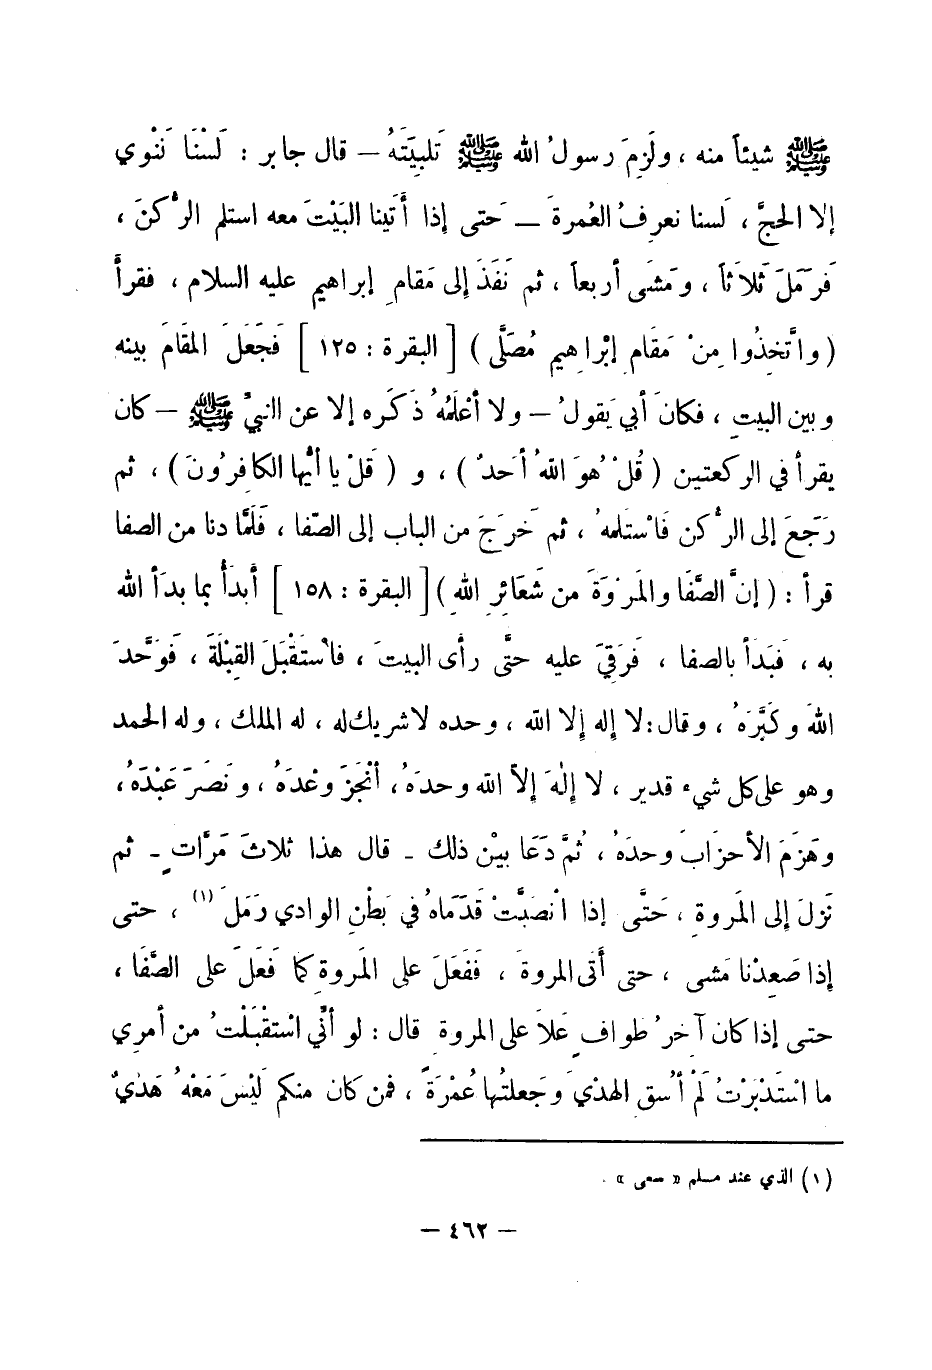 ﷺ شيئاً منه ، ولَزِمَ رسولُ الله ﷺ تَلبِيَتَهُ — قال جابر : لَسْنَا نَنْوي
إلا الحجَّ ، لَسنا نعرِفُ العُمرةَ — حَتى إذا أَتَينا البَيْتَ معه استلم الرُّكنَ ،
فَرَمَلَ ثَلاَثاً ، ومَشَى أربعاً ، ثم نَفَذَ إلى مَقامِ إبراهيم عليه السلام ، فقرأَ
( واتَّخِذُوا مِنْ مَقَامِ إبْراهِيمَ مُصَلَّى ) [ البقرة : ١٢٥ ] فَجَعَلَ المقَامَ بينه
وبين البيتِ ، فكانَ أبي يَقولُ — ولا أعْلَمُهُ ذَكَره إلا عن النبيِّ ﷺ — كان
يقرأ في الركعتين ( قُلْ هُوَ اللهُ أحَدٌ ) ، و ( قلْ يا أيُّها الكافِرُونَ ) ، ثم
رَجَعَ إلى الرُّكن فَاسْتَلمهُ ، ثم خَرجَ من الباب إلى الصّفا ، فَلَمَّا دنا من الصفا
قرأ : ( إنَّ الصَّفَا والمَرْوَةَ من شَعَائرِ اللهِ ) [ البقرة : ١٥٨ ] أبدأُ بما بدَأ الله
به ، فَبَدَأ بالصفا ، فَرَقِيَ عليه حتَّى رأى البيتَ ، فاسْتَقْبَلَ القِبْلَةَ ، فَوَحَّدَ
اللهَ وكَبَّرَهُ ، وقال : لا إله إلا الله ، وحده لا شريك له ، له الملك ، وله الحمد
وهو على كل شيء قدير ، لا إلٰهَ إلاّ الله وحدَهُ ، أنْجَزَ وعْدَهُ ، ونَصَرَ عَبْدَهُ ،
وهَزَمَ الأحزَابَ وحدَهُ ، ثُمَّ دَعَا بيْن ذلك - قال هذا ثلاثَ مَرَّاتٍ - ثم
نَزلَ إلى المَروة ، حَتَّى إذا انْصَبَّتْ قَدَمَاهُ في بَطْنِ الوادي رَمَلَ (١) ، حتى
إذا صَعِدْنا مَشى ، حتى أَتى المروةَ ، فَفَعَلَ على المَروةِ كما فَعَلَ على الصَّفَا ،
حتى إذا كان آخرُ طوافٍ عَلاَ على المروة قال : لو أنِّي اسْتَقْبَلْتُ من أمري
ما اسْتَدْبَرْتُ لَمْ أسُقِ الهدْيَ وجَعلتُها عُمْرَةً ، فمن كان منكم لَيْسَ مَعْهُ هَدْيٌ
(١) الذي عند مسلم « سعى » .
— ٤٦٢ —